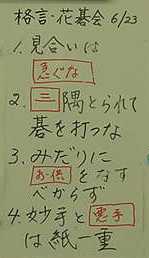 格言・花碁会 6/23
1. 見合いは
急ぐな
2. 三隅とられて
碁を打つな
3. みだりに
お供をなす
べからず
4. 妙手と悪手
は紙一重